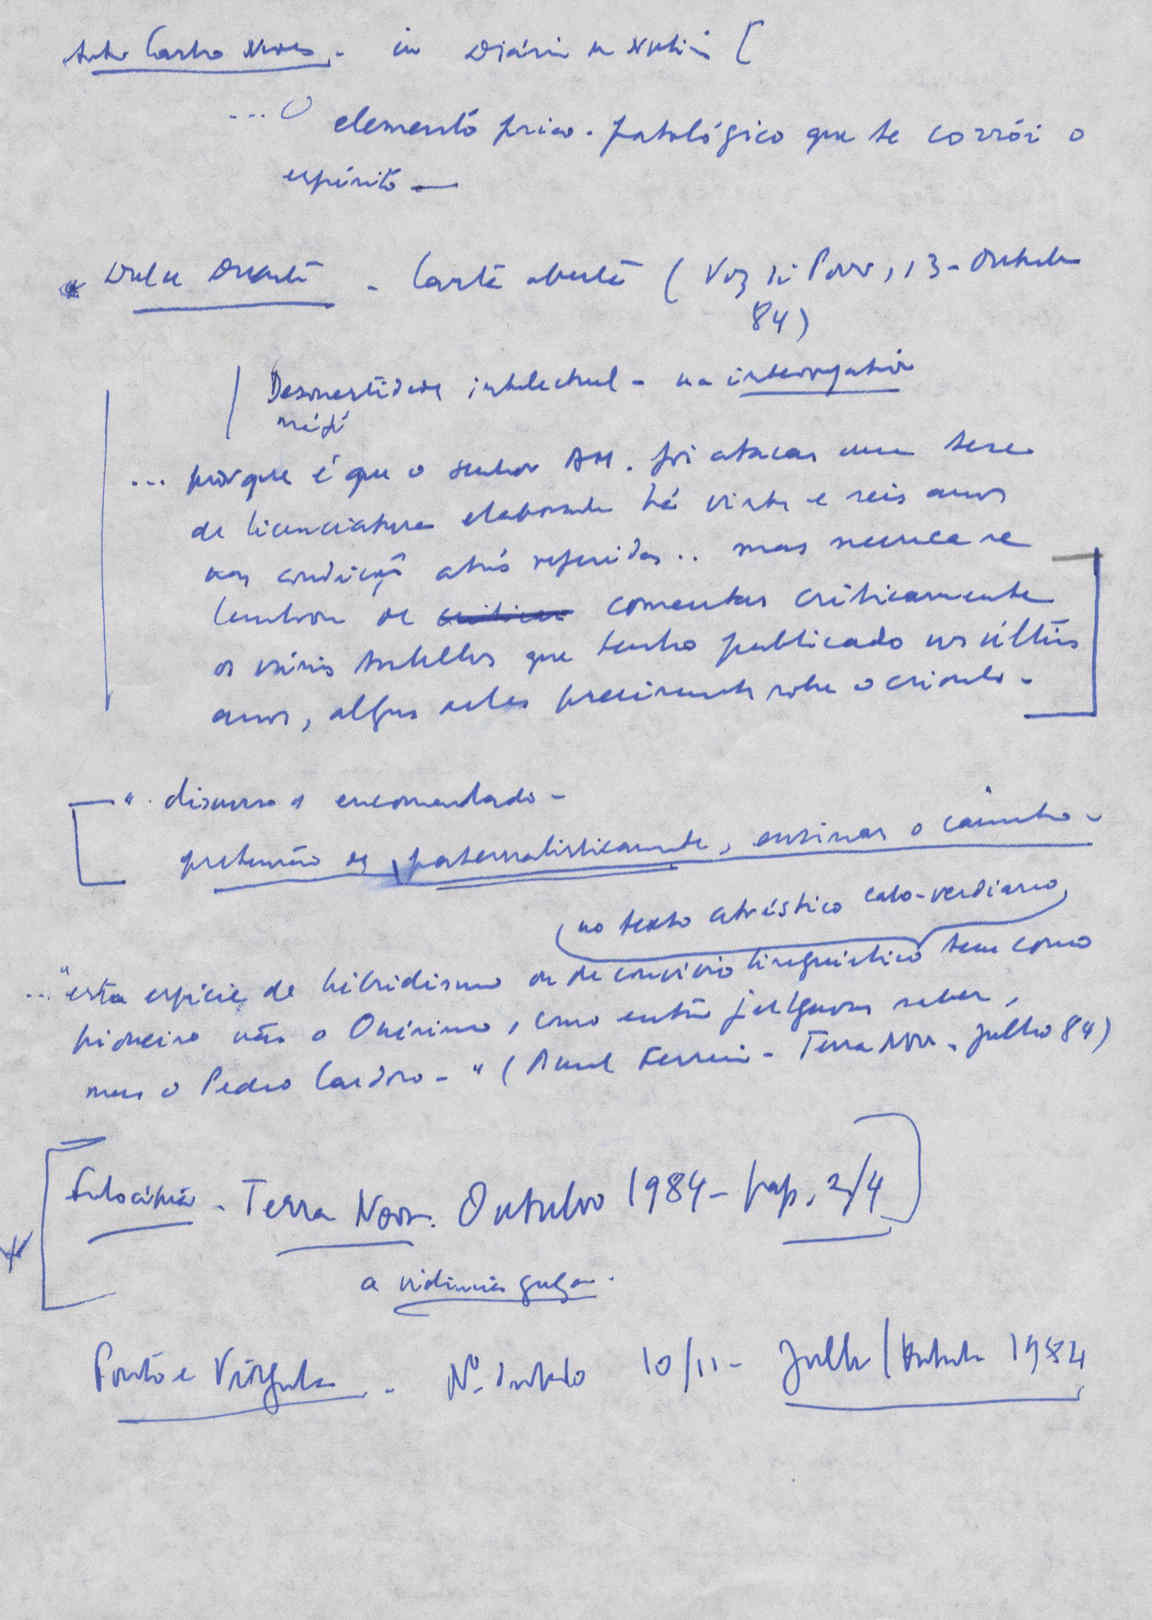 Carlos Neves - in Diário de Notícias [
... O elemento psico-patológico que te corrói o
espírito —
* Dulce Duarte - Carta aberta (Voz di Povo, 13 - Outubro
84)
Desonestidade intelectual - na interrogativa
... porque é que o senhor AM. foi atacar uma tese
de licenciatura elaborada há vinte e seis anos
nas condições atrás referidas.. mas nunca se
lembrou de comentar criticamente
os vários trabalhos que tenho publicado nos últimos
anos, alguns deles precisamente sobre o crioulo -
". discurso encomendado -
pretensão de, paternalisticamente, ensinar o caminho -
no texto artístico cabo-verdiano
... "esta espécie de hibridismo ou de convívio linguístico tem como
pioneiro não o Onésimo, como então julgava saber,
mas o Pedro Cardoso - " (Manuel Ferreira - Terra Nova - Julho 84)
- Terra Nova. Outubro 1984 - pags. 2/4
a
Ponto e Vírgula - Nº 10/11 - Julho / Outubro 1984